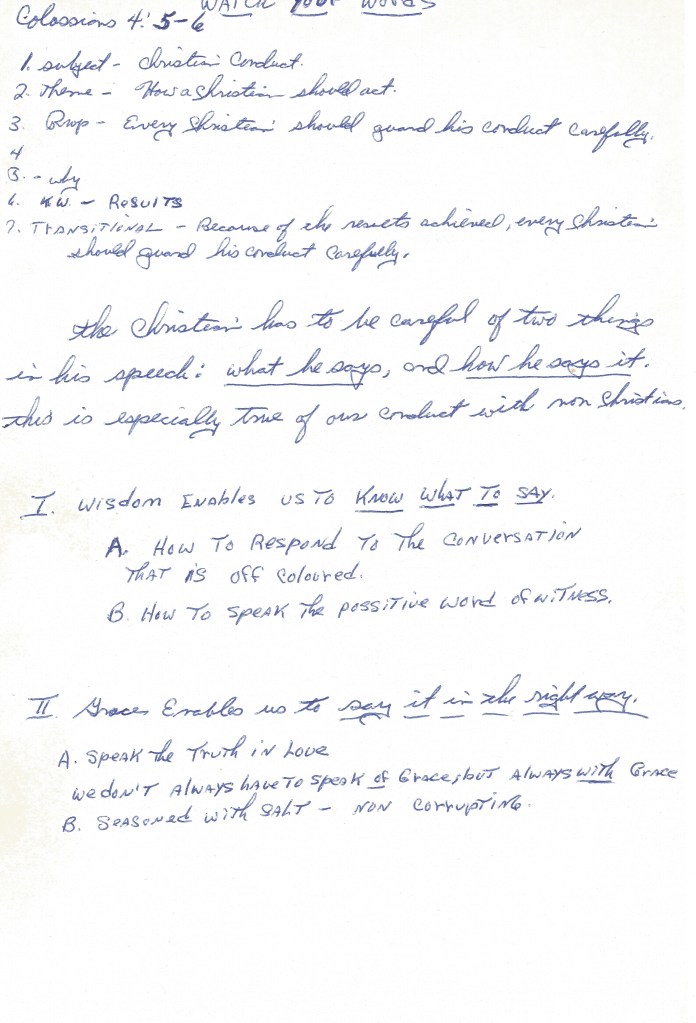 WATCH YOUR WORDS
Colossions 4:5-6
1. subject - Christian Conduct.
2. Theme - How a Christian should act.
3. Prop - Every Christian should guard his conduct carefully.
4
5. - why
6. KW. - Results
7. TRANSITIONAL - Because of the results achieved, every Christian
should guard his conduct carefully.
The Christian has to be careful of two things
in his speech: what he says, and how he says it.
this is especially true of our conduct with non Christians.
I. Wisdom Enables us to Know What To Say.
A. How To Respond To The Conversation
That is off coloured.
B. How To speak the possitive word of witness.
II Graces Enables us to say it in the right way.
A. Speak the Truth in Love
we don't always have to speak of Grace, but always with Grace
B. Seasoned with Salt - non corrupting.